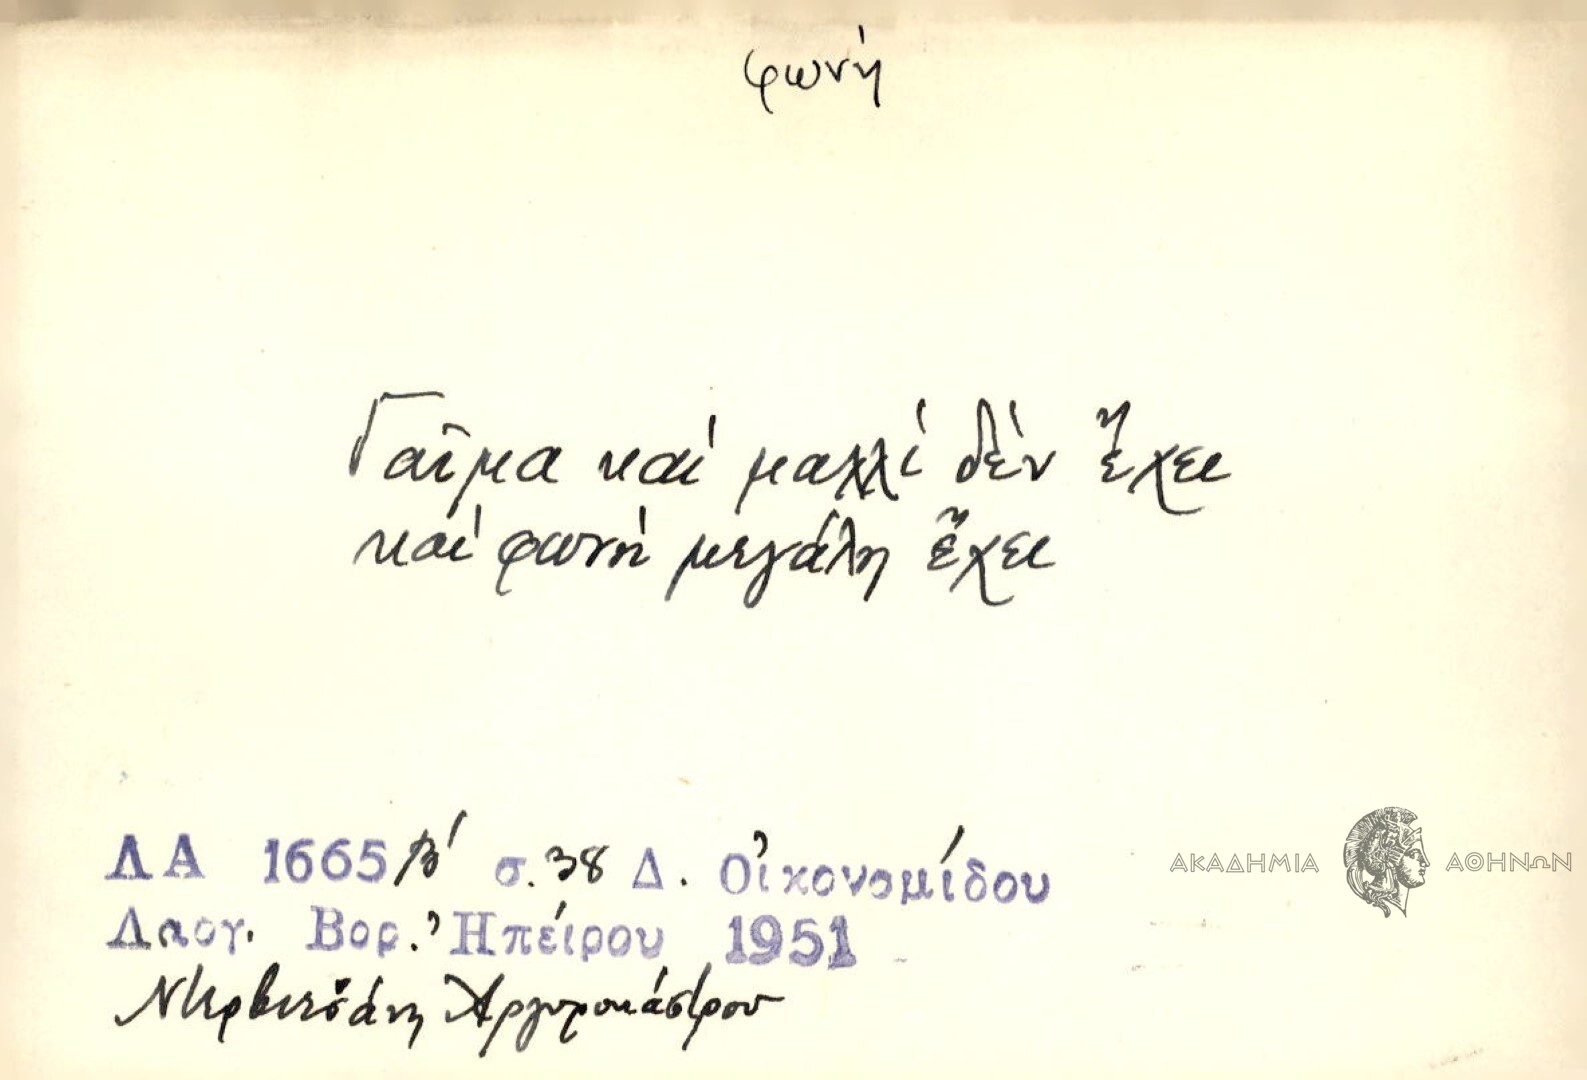 φωνή
Γαῖμα καί μαλλί δέν ἔχει
καί φωνή μεγάλη ἔχει
ΛΑ 1665 β' σ. 38 Δ. Οἰκονομίδου
Λαογ. Βορ. Ἠπείρου 1951
Ντερβιτσάνη Ἀργυροκάστρου
ΑΚΑΔΗΜΙΑ ΑΘΗΝΩΝ